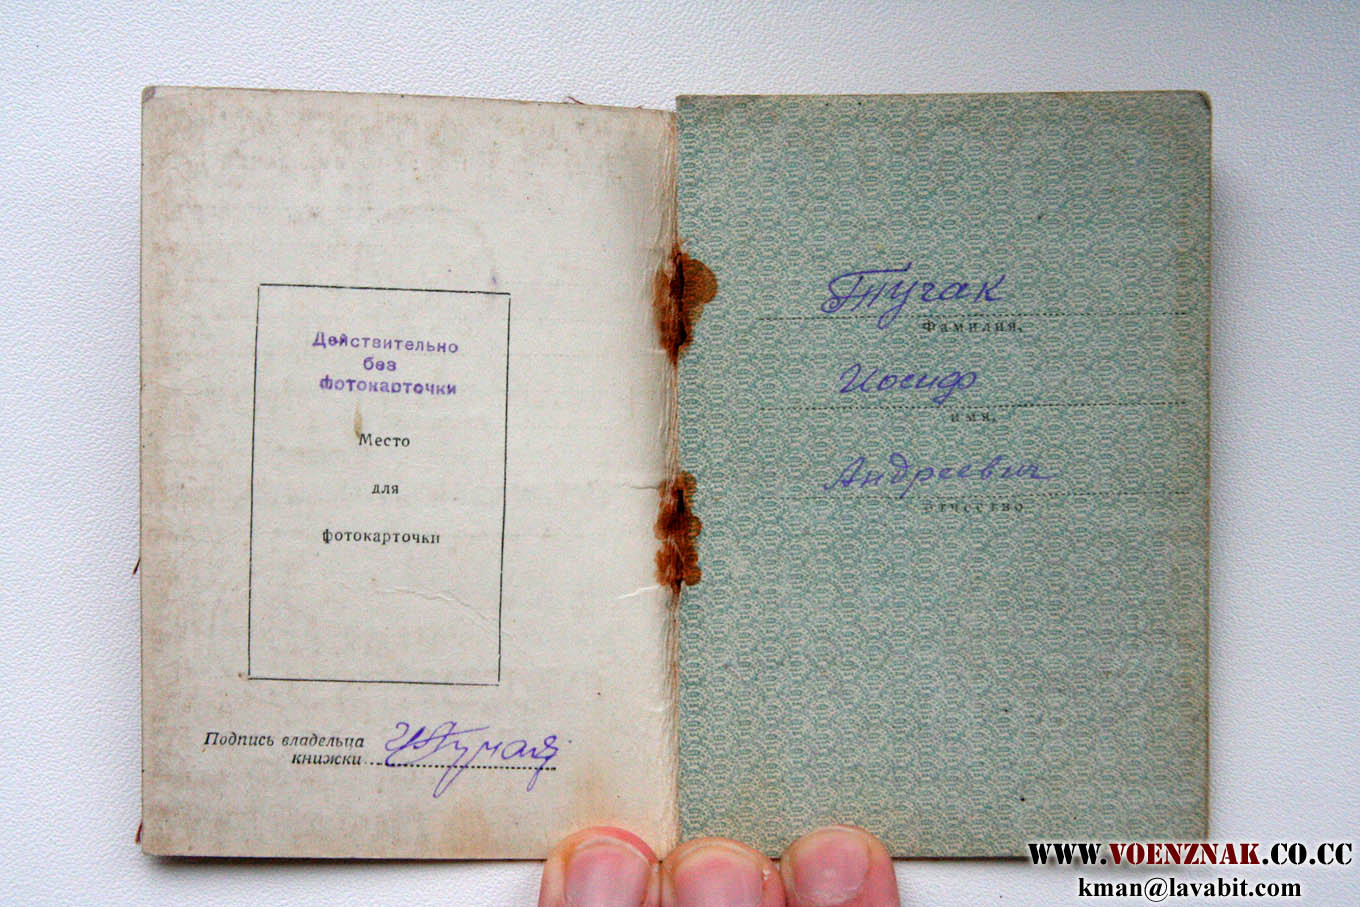 Действительно
без
фотокарточки
Место
для
фотокарточки
Подпись владельца
книжки
Тучак
Фамилия,
Иосиф
имя,
Андреевич
отчество
WWW.VOENZNAK.CO.CC
kman@lavabit.com